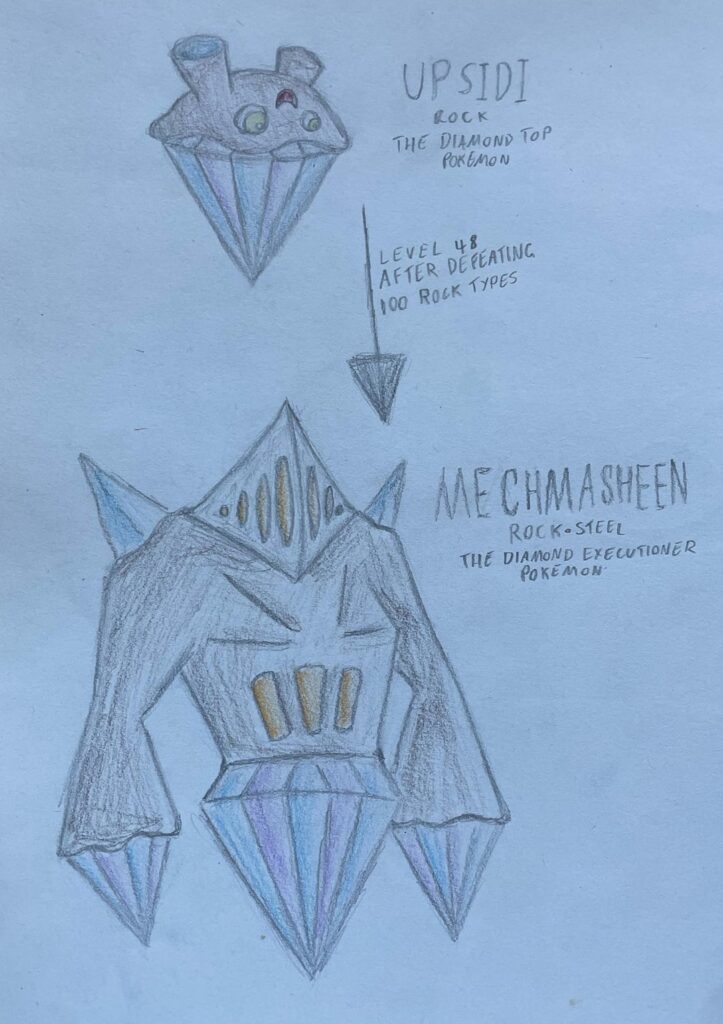 UPSIDI
ROCK
THE DIAMOND TOP
POKEMON
LEVEL 48
AFTER DEFEATING
100 ROCK TYPES
MECHMASHEEN
ROCK•STEEL
THE DIAMOND EXECUTIONER
POKEMON